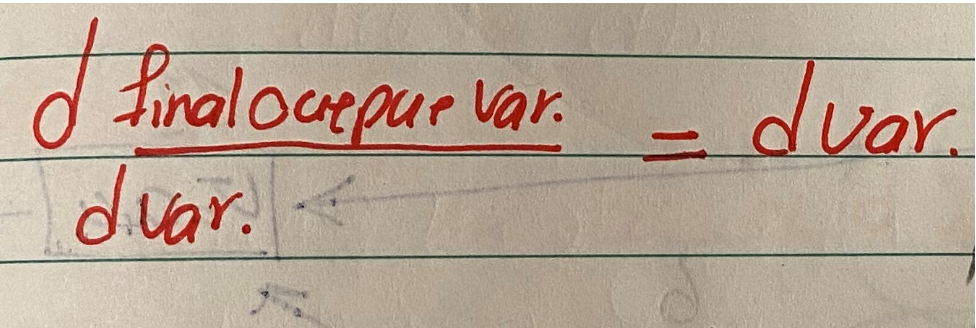 d final output var. = d var.
d var.